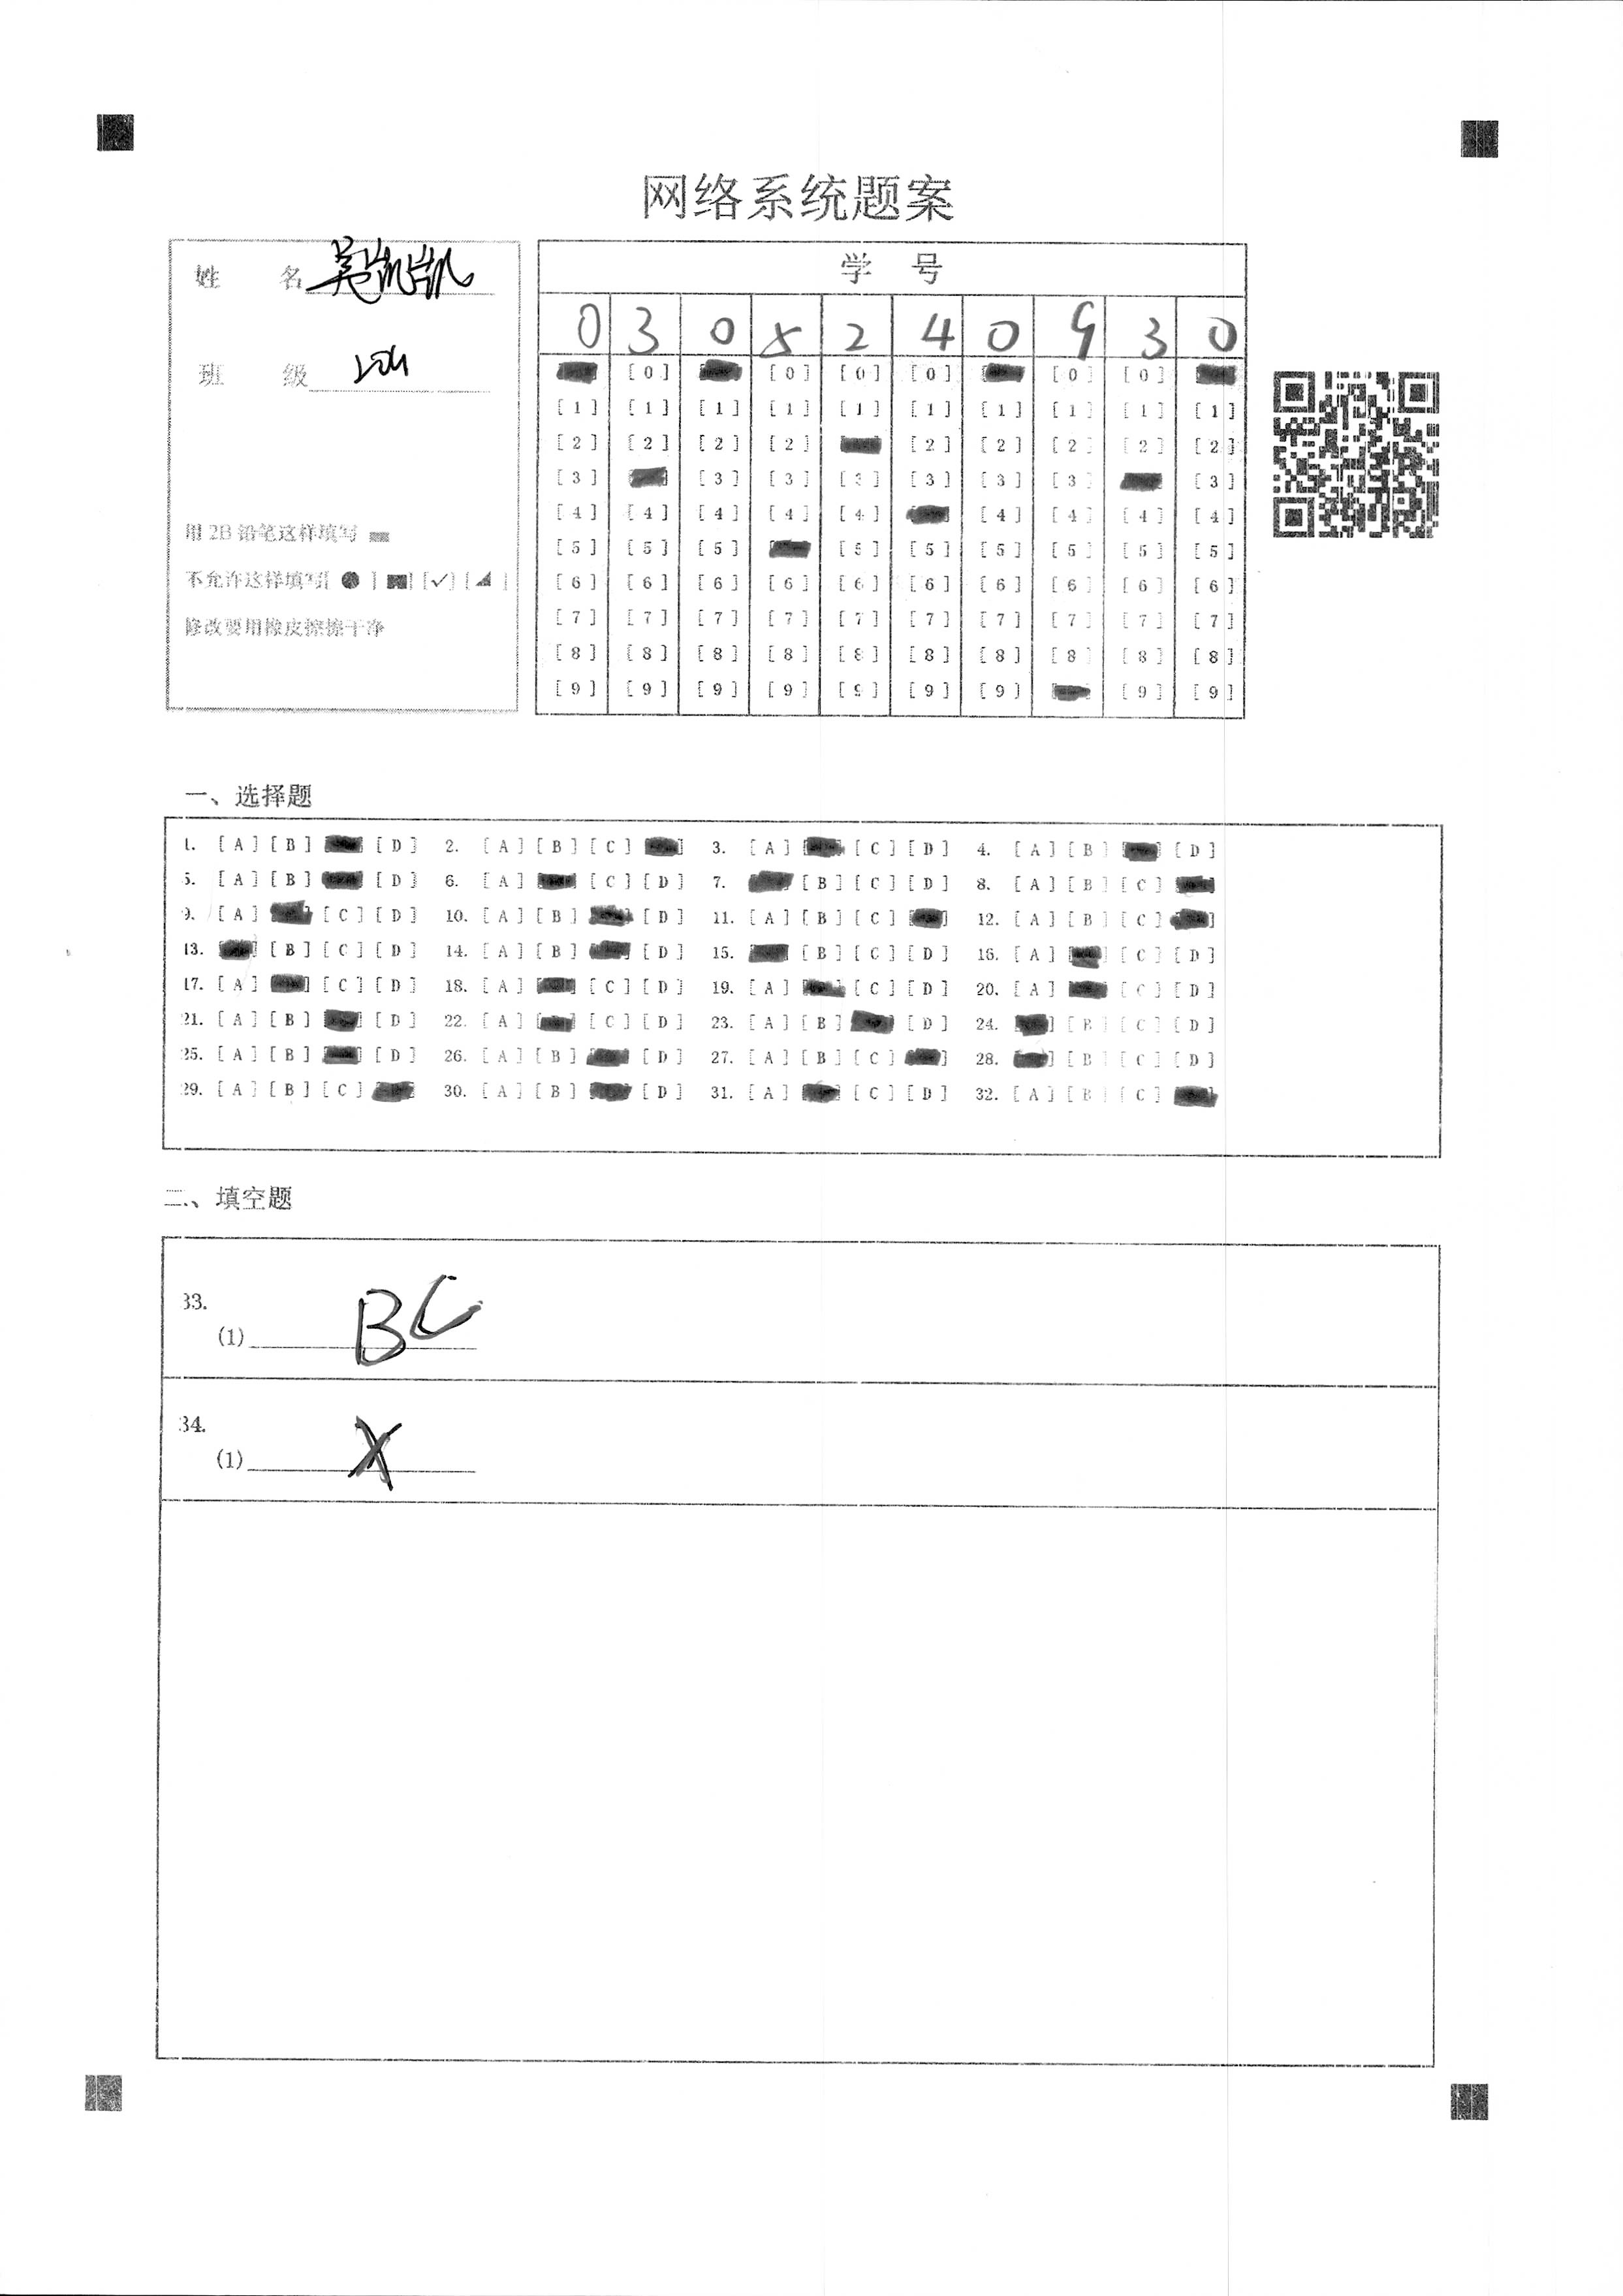 网络系统题案
姓 名 吴凯凯
班 级 204
用 2B 铅笔这样填写
不允许这样填写[ ● ] [■] [✓] [◢ ]
修改要用橡皮擦擦干净
学 号
0 3 0 5 2 4 0 9 3 0
[0] [0] [0] [0] [0] [0]
[1] [1] [1] [1] [1] [1] [1] [1] [1] [1]
[2] [2] [2] [2] [2] [2] [2] [2] [2]
[3] [3] [3] [3] [3] [3] [3] [3]
[4] [4] [4] [4] [4] [4] [4] [4] [4]
[5] [5] [5] [5] [5] [5] [5] [5] [5]
[6] [6] [6] [6] [6] [6] [6] [6] [6] [6]
[7] [7] [7] [7] [7] [7] [7] [7] [7] [7]
[8] [8] [8] [8] [8] [8] [8] [8] [8] [8]
[9] [9] [9] [9] [9] [9] [9] [9] [9]
一、选择题
1. [A] [B] [D] 2. [A] [B] [C] 3. [A] [C] [D] 4. [A] [B] [D]
5. [A] [B] [D] 6. [A] [C] [D] 7. [B] [C] [D] 8. [A] [B] [C]
9. [A] [C] [D] 10. [A] [B] [D] 11. [A] [B] [C] 12. [A] [B] [C]
13. [B] [C] [D] 14. [A] [B] [D] 15. [B] [C] [D] 16. [A] [C] [D]
17. [A] [C] [D] 18. [A] [C] [D] 19. [A] [C] [D] 20. [A] [C] [D]
21. [A] [B] [D] 22. [A] [C] [D] 23. [A] [B] [D] 24. [B] [C] [D]
25. [A] [B] [D] 26. [A] [B] [D] 27. [A] [B] [C] 28. [B] [C] [D]
29. [A] [B] [C] 30. [A] [B] [D] 31. [A] [C] [D] 32. [A] [B] [C]
二、填空题
33.
(1) BC
34.
(1) X